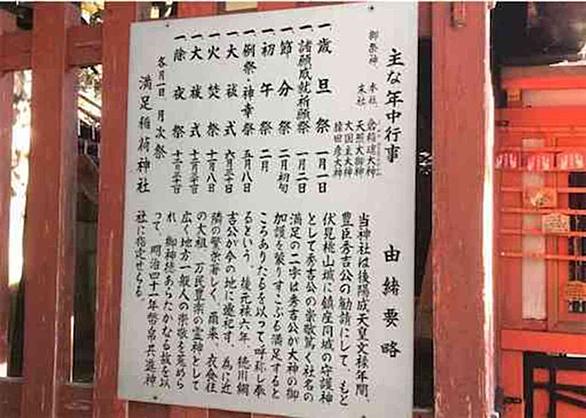 主な年中行事
御祭神 本社 倉稲魂大神
末社 天照大御神
大国主大神
猿田彦大神
一 歳旦祭 一月一日
一 諸願成就祈願祭 一月二日
一 節分祭 二月初旬
一 初午祭 二月
一 例祭・神幸祭 五月八日
一 大祓式 六月三十日
一 火焚祭 十一月八日
一 大祓式 十二月三十一日
一 除夜祭 十二月三十一日
各月一日 月次祭
満足稲荷神社
由緒要略
当神社は後陽成天皇文禄年間、
豊臣秀吉公の勧請にして、もと
伏見桃山城に鎮座同城の守護神
として秀吉公の崇敬篤く社名の
満足の二字は秀吉公が大神の御
加護を蒙りすこぶる満足すると
ころありたるを以って呼称し奉
るという。後元禄六年、徳川綱
吉公が今の地に遷祀す。為に近
隣の繁栄著しく、爾来、衣食住
の大祖、万民豊楽の霊神として
広く地方一般人の崇敬を蒐めら
れ、御神徳あらたかなる故を以
って、明治四十一年幣帛共進神
社に指定せらる。